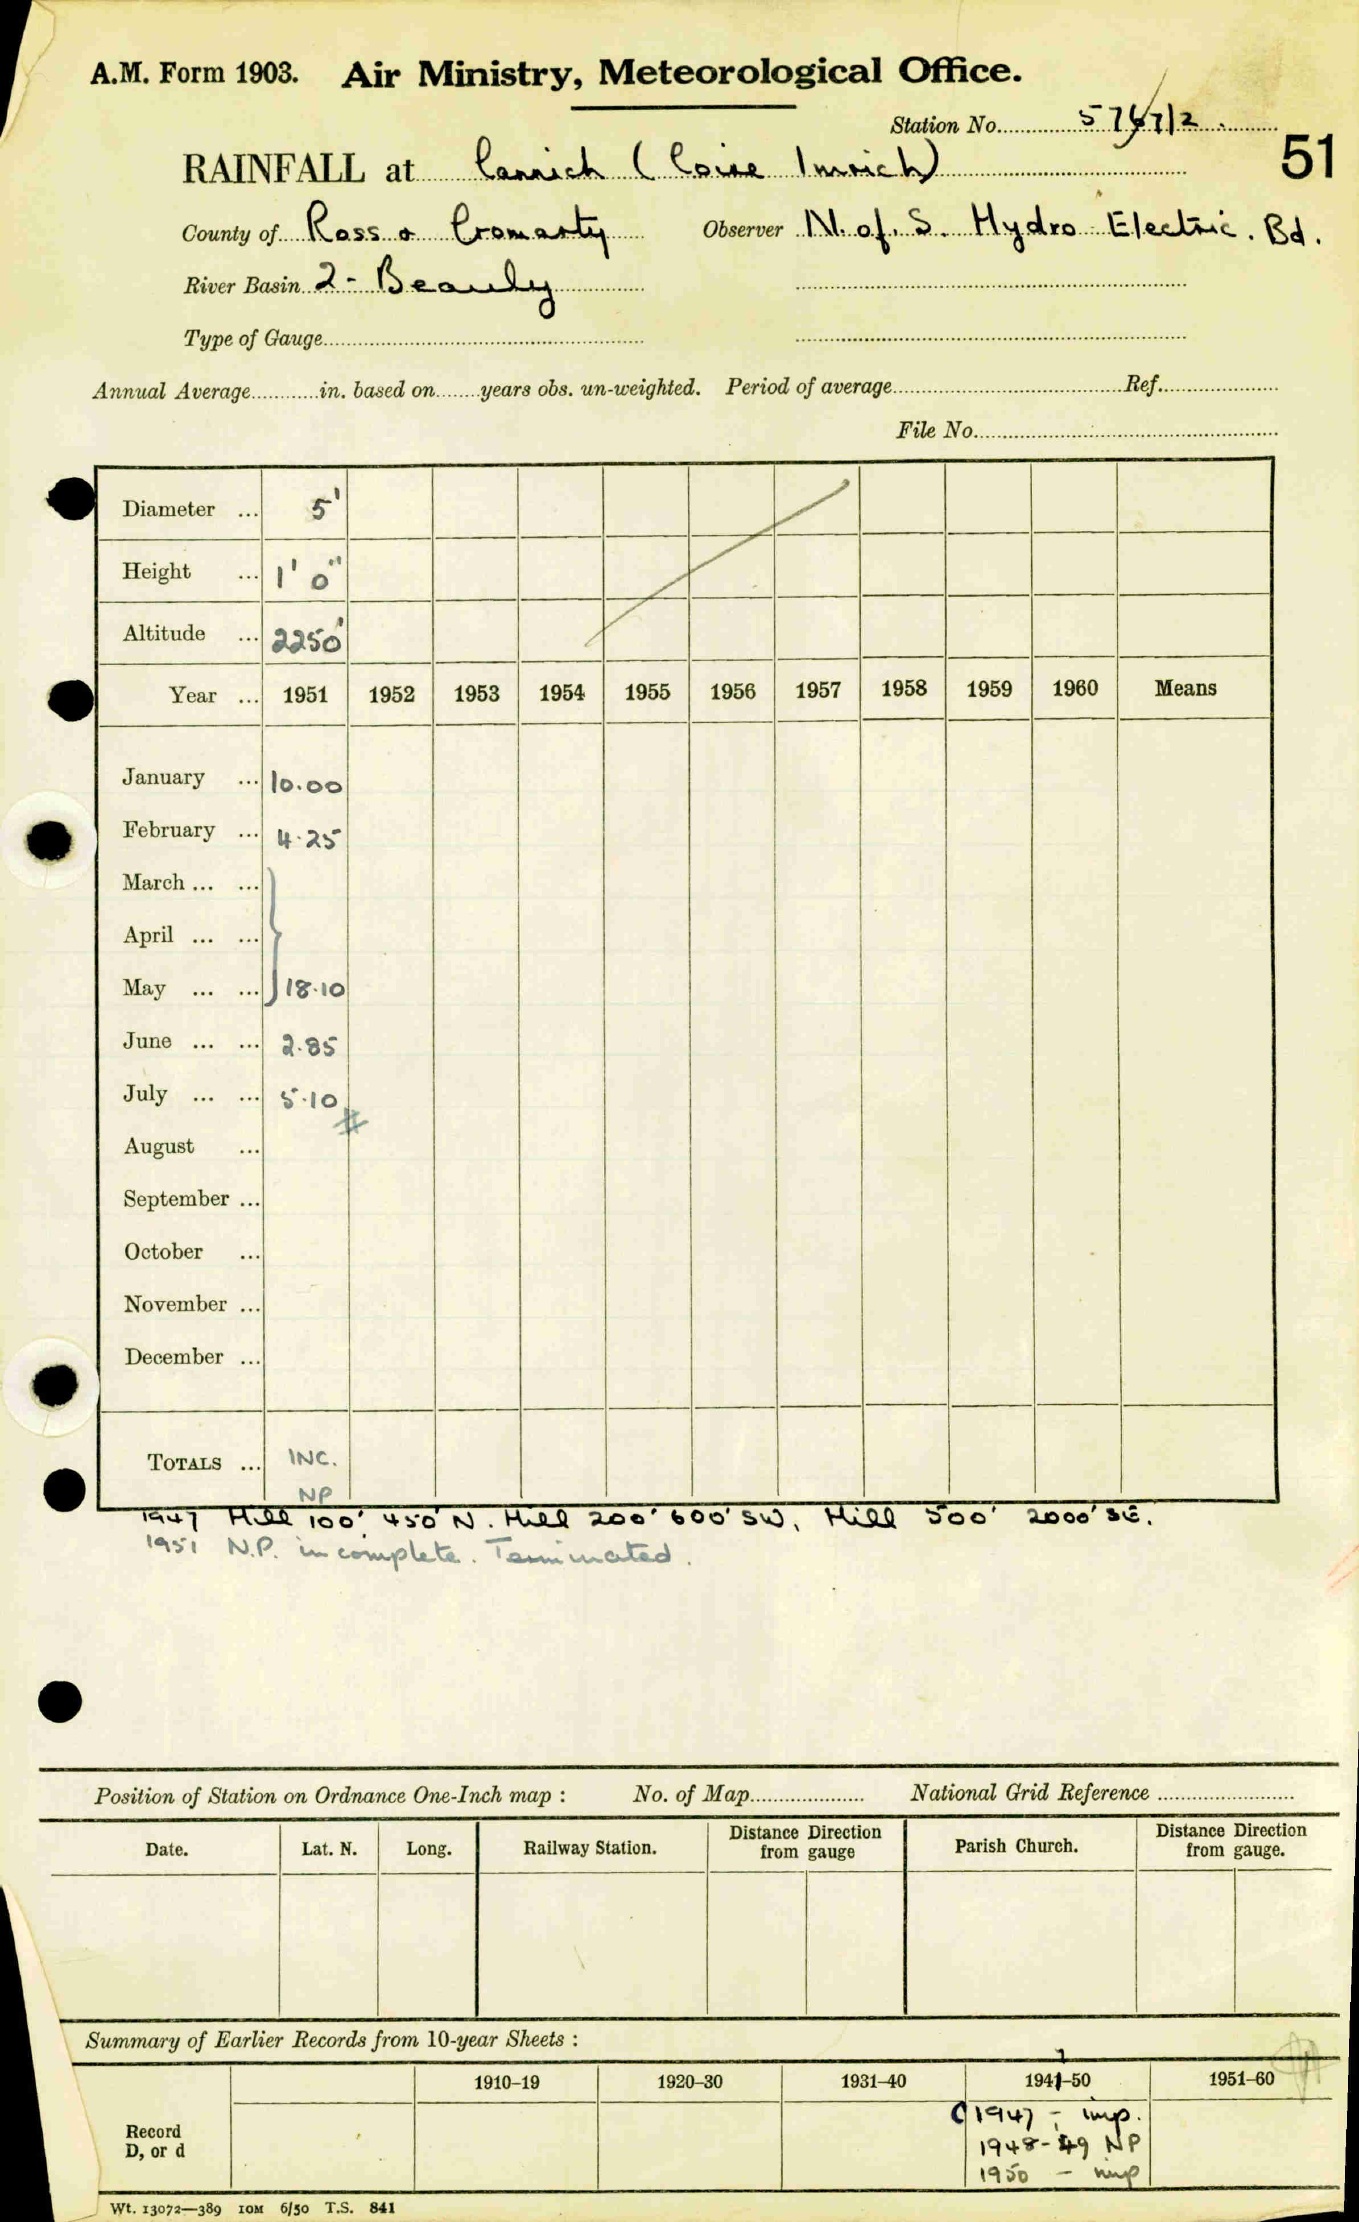 A.M. Form 1903. Air Ministry, Meteorological Office.
Station No. 5767/2
51
RAINFALL at Cannich (Coire Imrich)
County of Ross & Cromarty Observer N. of. S. Hydro Electric. Bd.
River Basin 2 - Beauly
Type of Gauge
Annual Average in. based on years obs. un-weighted. Period of average Ref.
File No.
Diameter ... 5'
Height ... 1' 0"
Altitude ... 2250'
Year ... 1951 1952 1953 1954 1955 1956 1957 1958 1959 1960 Means
January ... 10.00
February ... 4.25
March ... ...
April ... ...
May ... ... 18.10
June ... ... 2.85
July ... ... 5.10
August ...
September ...
October ...
November ...
December ...
TOTALS ... INC.
NP
1947 Hill 100' 450' N. Hill 200' 600' SW, Hill 500' 2000' SE.
1951 N.P. incomplete. Terminated.
Position of Station on Ordnance One-Inch map : No. of Map National Grid Reference
Date. Lat. N. Long. Railway Station. Distance Direction from gauge Parish Church. Distance Direction from gauge.
Summary of Earlier Records from 10-year Sheets :
7
1910–19 1920–30 1931–40 1941–50 1951–60
Record
D, or d
1947 - imp.
1948-49 NP
1950 - imp
Wt. 13072—389 10M 6/50 T.S. 841